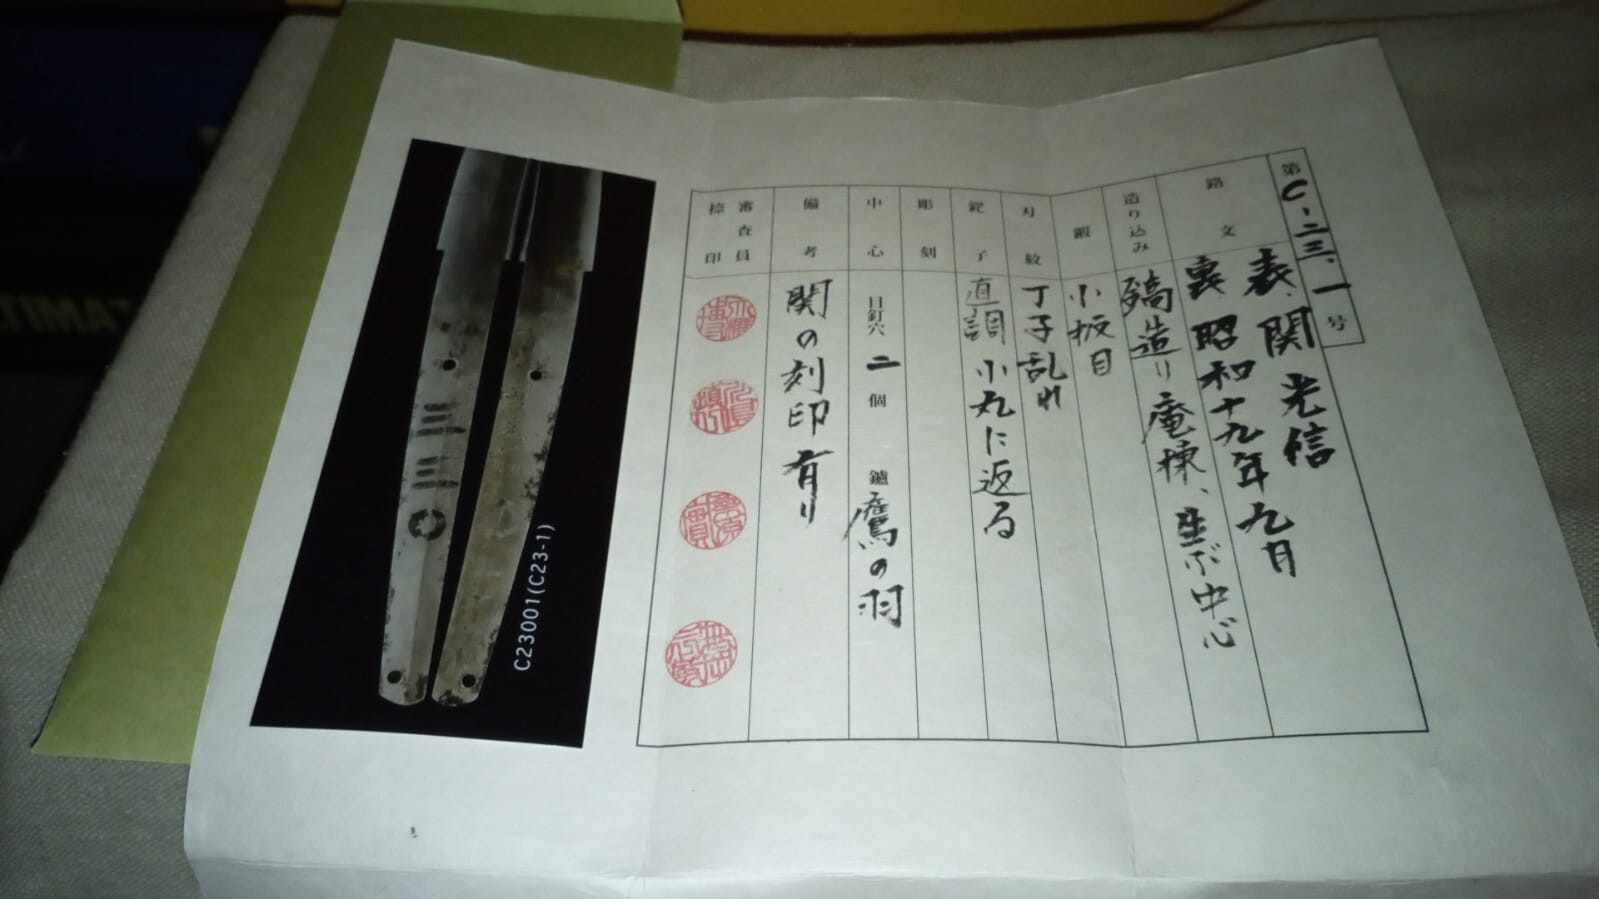 第C-二三、一号
路文
表、関 光信
裏 昭和十九年九月
造り込み
鎬造り 庵棟、生ぶ中心
鍛
小板目
刃紋
丁子乱れ
鋩子
直調 小丸に返る
彫刻
中心
目釘穴 二 個 鑢 鷹の羽
備考
関の刻印有り
審査員
捺印
C23001(C23-1)